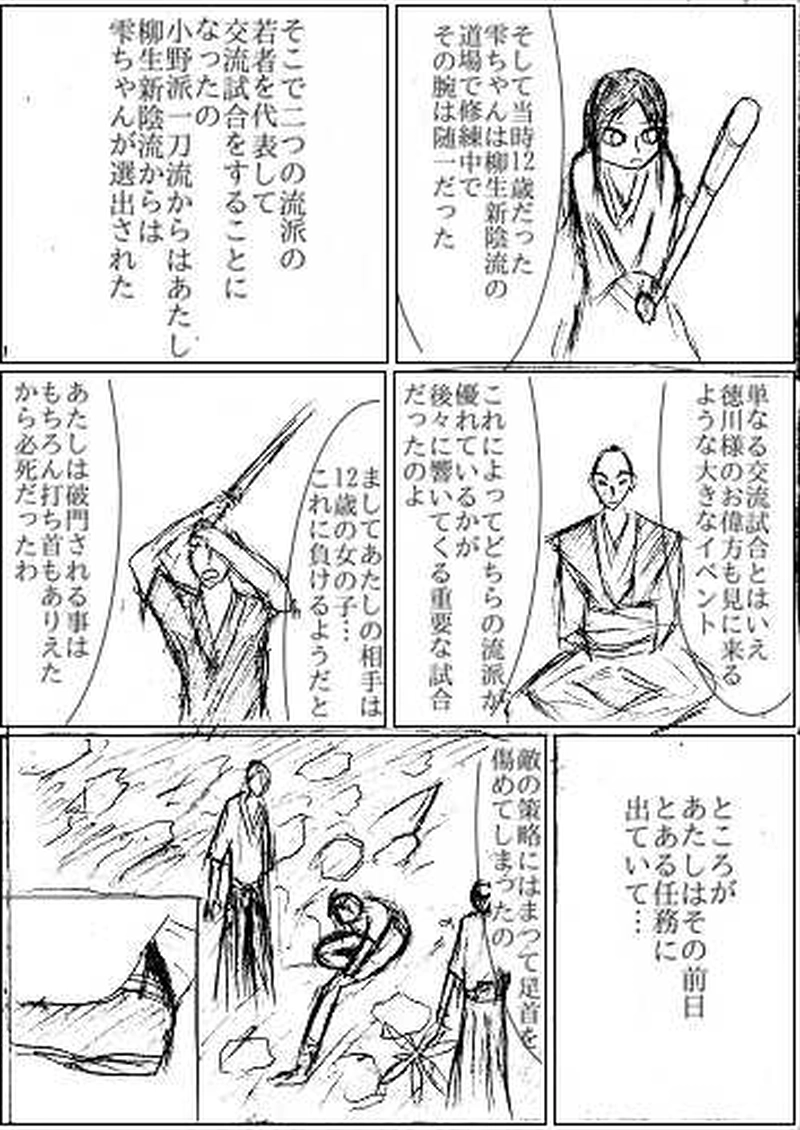 そして当時12歳だった
雫ちゃんは柳生新陰流の
道場で修練中で
その腕は随一だった
そこで二つの流派の
若者を代表して
交流試合をすることに
なったの
小野派一刀流からはあたし
柳生新陰流からは
雫ちゃんが選出された
単なる交流試合とはいえ
徳川様のお偉方も見に来る
ような大きなイベント
これによってどちらの流派が
優れているかが
後々に響いてくる重要な試合
だったのよ
ましてあたしの相手は
12歳の女の子…
これに負けるようだと
あたしは破門される事は
もちろん打ち首もありえた
から必死だったわ
ところが
あたしはその前日
とある任務に
出ていて…
敵の策略にはまつて足首を
傷めてしまったの